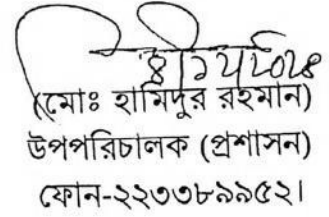 (মোঃ হামিদুর রহমান)
উপপরিচালক (প্রশাসন)
ফোন-২২৩৩৮৯৯৫২।